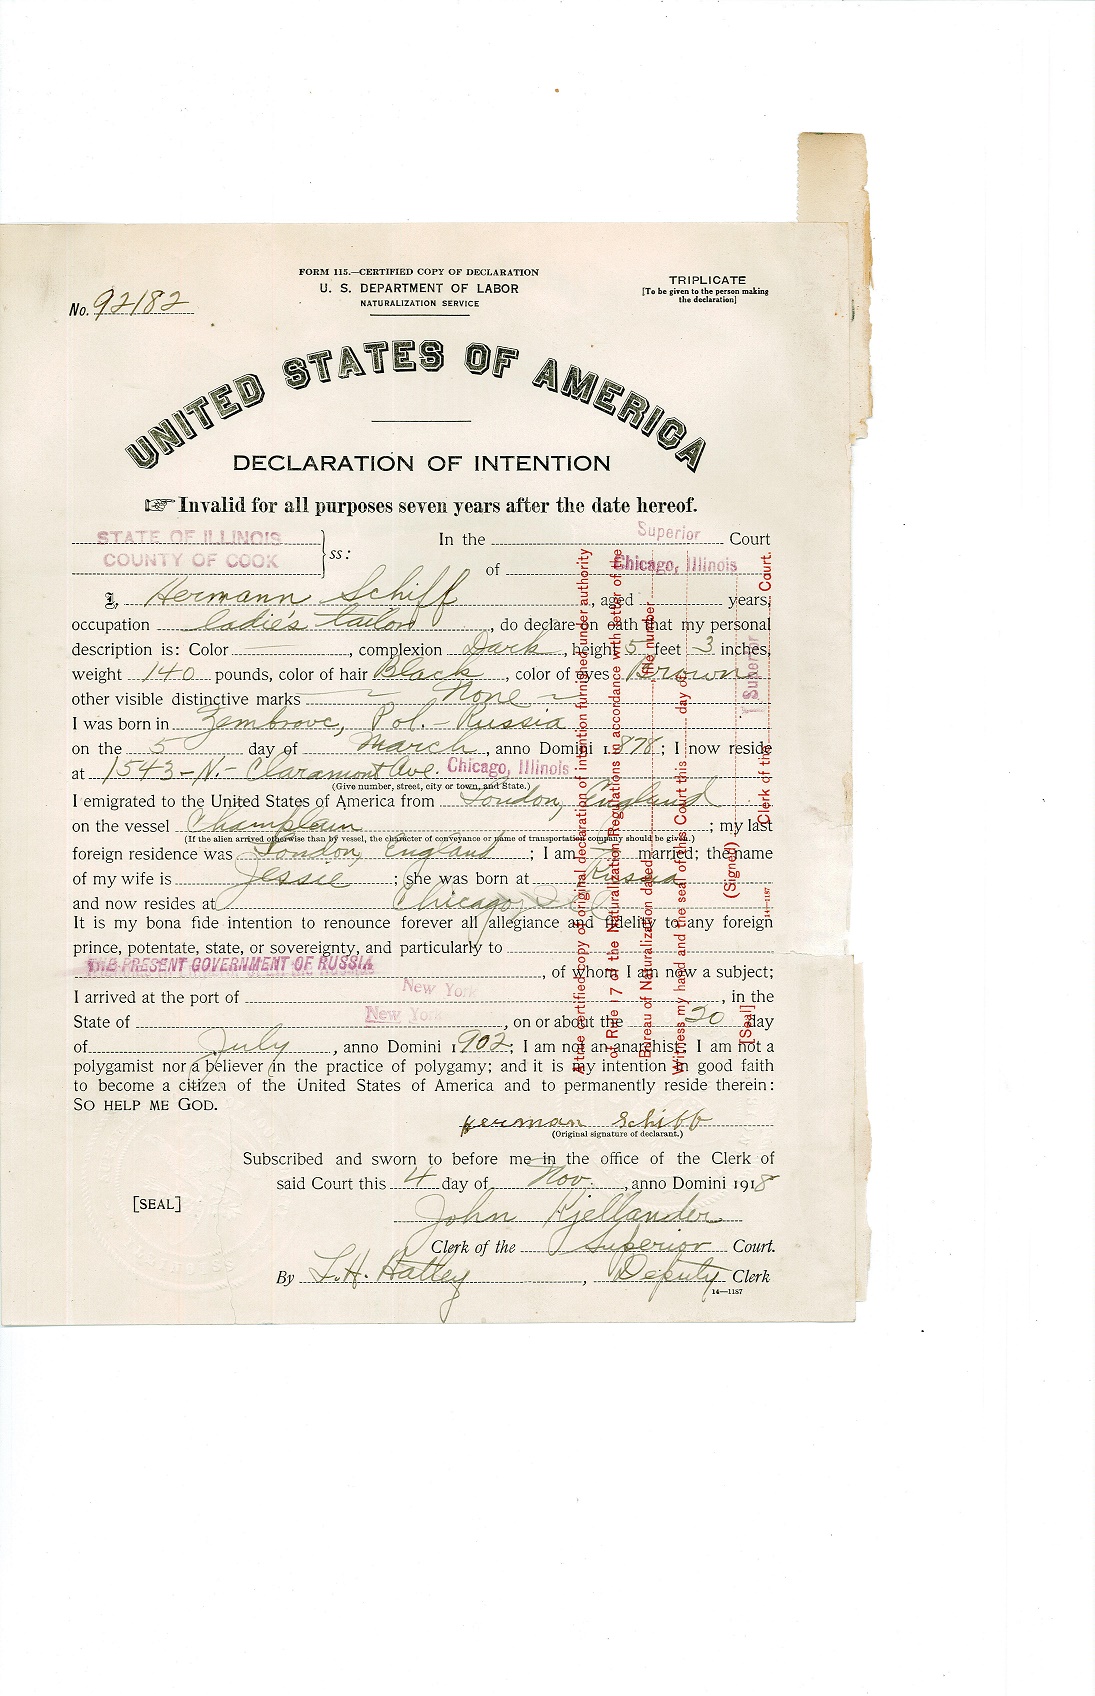 FORM 115.—CERTIFIED COPY OF DECLARATION
U. S. DEPARTMENT OF LABOR
NATURALIZATION SERVICE
TRIPLICATE
[To be given to the person making
the declaration]
No. 92182
UNITED STATES OF AMERICA
DECLARATION OF INTENTION
☞ Invalid for all purposes seven years after the date hereof.
STATE OF ILLINOIS
COUNTY OF COOK
ss:
In the Superior Court
of Chicago, Illinois
I, Hermann Schiff, aged years,
occupation ladie's tailor, do declare on oath that my personal
description is: Color —, complexion Dark, height 5 feet 3 inches,
weight 140 pounds, color of hair Black, color of eyes Brown
other visible distinctive marks — None —
I was born in Zembrove, Pol.- Russia
on the 5 day of March, anno Domini 1878; I now reside
at 1543-N.- Claramont Ave. Chicago, Illinois
(Give number, street, city or town, and State.)
I emigrated to the United States of America from London, England
on the vessel Champlain; my last
(If the alien arrived otherwise than by vessel, the character of conveyance or name of transportation company should be given.)
foreign residence was London, England; I am — married; the name
of my wife is Jessie; she was born at Russia
and now resides at Chicago, Ill
It is my bona fide intention to renounce forever all allegiance and fidelity to any foreign
prince, potentate, state, or sovereignty, and particularly to
THE PRESENT GOVERNMENT OF RUSSIA, of whom I am now a subject;
I arrived at the port of New York, in the
State of New York, on or about the 20 day
of July, anno Domini 1902; I am not an anarchist; I am not a
polygamist nor a believer in the practice of polygamy; and it is my intention in good faith
to become a citizen of the United States of America and to permanently reside therein:
SO HELP ME GOD.
Herman Schiff
(Original signature of declarant.)
Subscribed and sworn to before me in the office of the Clerk of
said Court this 4 day of Nov., anno Domini 1918
[SEAL]
John Kjellander
Clerk of the Superior Court.
By L.H. Hatley, Deputy Clerk
14—1187
A true certified copy of original declaration of intention furnished under authority
of Rule 17 of the Naturalization Regulations in accordance with letter of the
Bureau of Naturalization dated file number
Witness my hand and the seal of this Court this day of
(Signed)
[Seal] [Superior
Clerk of the Court.
14—1187